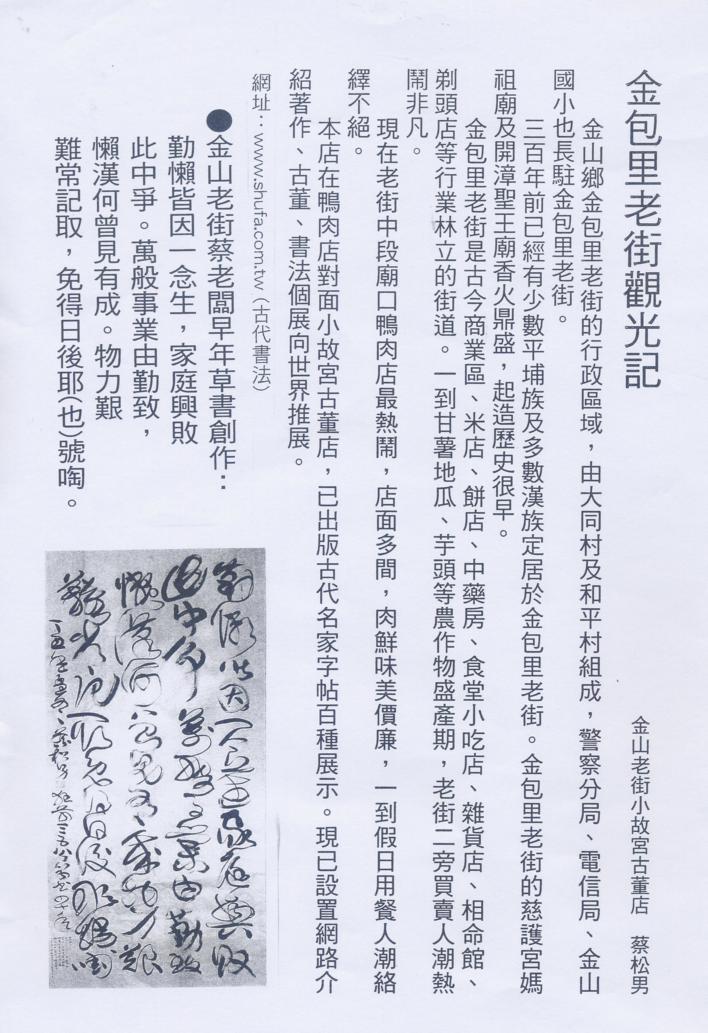 金包里老街觀光記
金山老街小故宮古董店　蔡松男
金山鄉金包里老街的行政區域，由大同村及和平村組成，警察分局、電信局、金山
國小也長駐金包里老街。
三百年前已經有少數平埔族及多數漢族定居於金包里老街。金包里老街的慈護宮媽
祖廟及開漳聖王廟香火鼎盛，起造歷史很早。
金包里老街是古今商業區、米店、餅店、中藥房、食堂小吃店、雜貨店、相命館、
剃頭店等行業林立的街道。一到甘薯地瓜、芋頭等農作物盛產期，老街二旁買賣人潮熱
鬧非凡。
現在老街中段廟口鴨肉店最熱鬧，店面多間，肉鮮味美價廉，一到假日用餐人潮絡
繹不絕。
本店在鴨肉店對面小故宮古董店，已出版古代名家字帖百種展示。現已設置網路介
紹著作、古董、書法個展向世界推展。
網址：www.shufa.com.tw (古代書法)
●金山老街蔡老闆早年草書創作：
勤懶皆因一念生，家庭興敗
此中爭。萬般事業由勤致，
懶漢何曾見有成。物力艱
難常記取，免得日後耶(也)號啕。